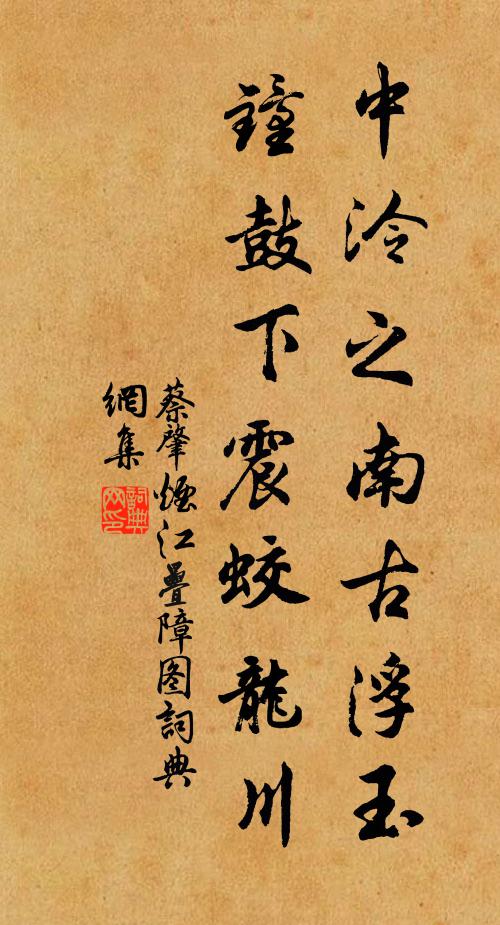 中泠之南古浮玉
鐘鼓下震蛟龍川
蔡肇煙江疊障图詞典
網集
詞典
网印